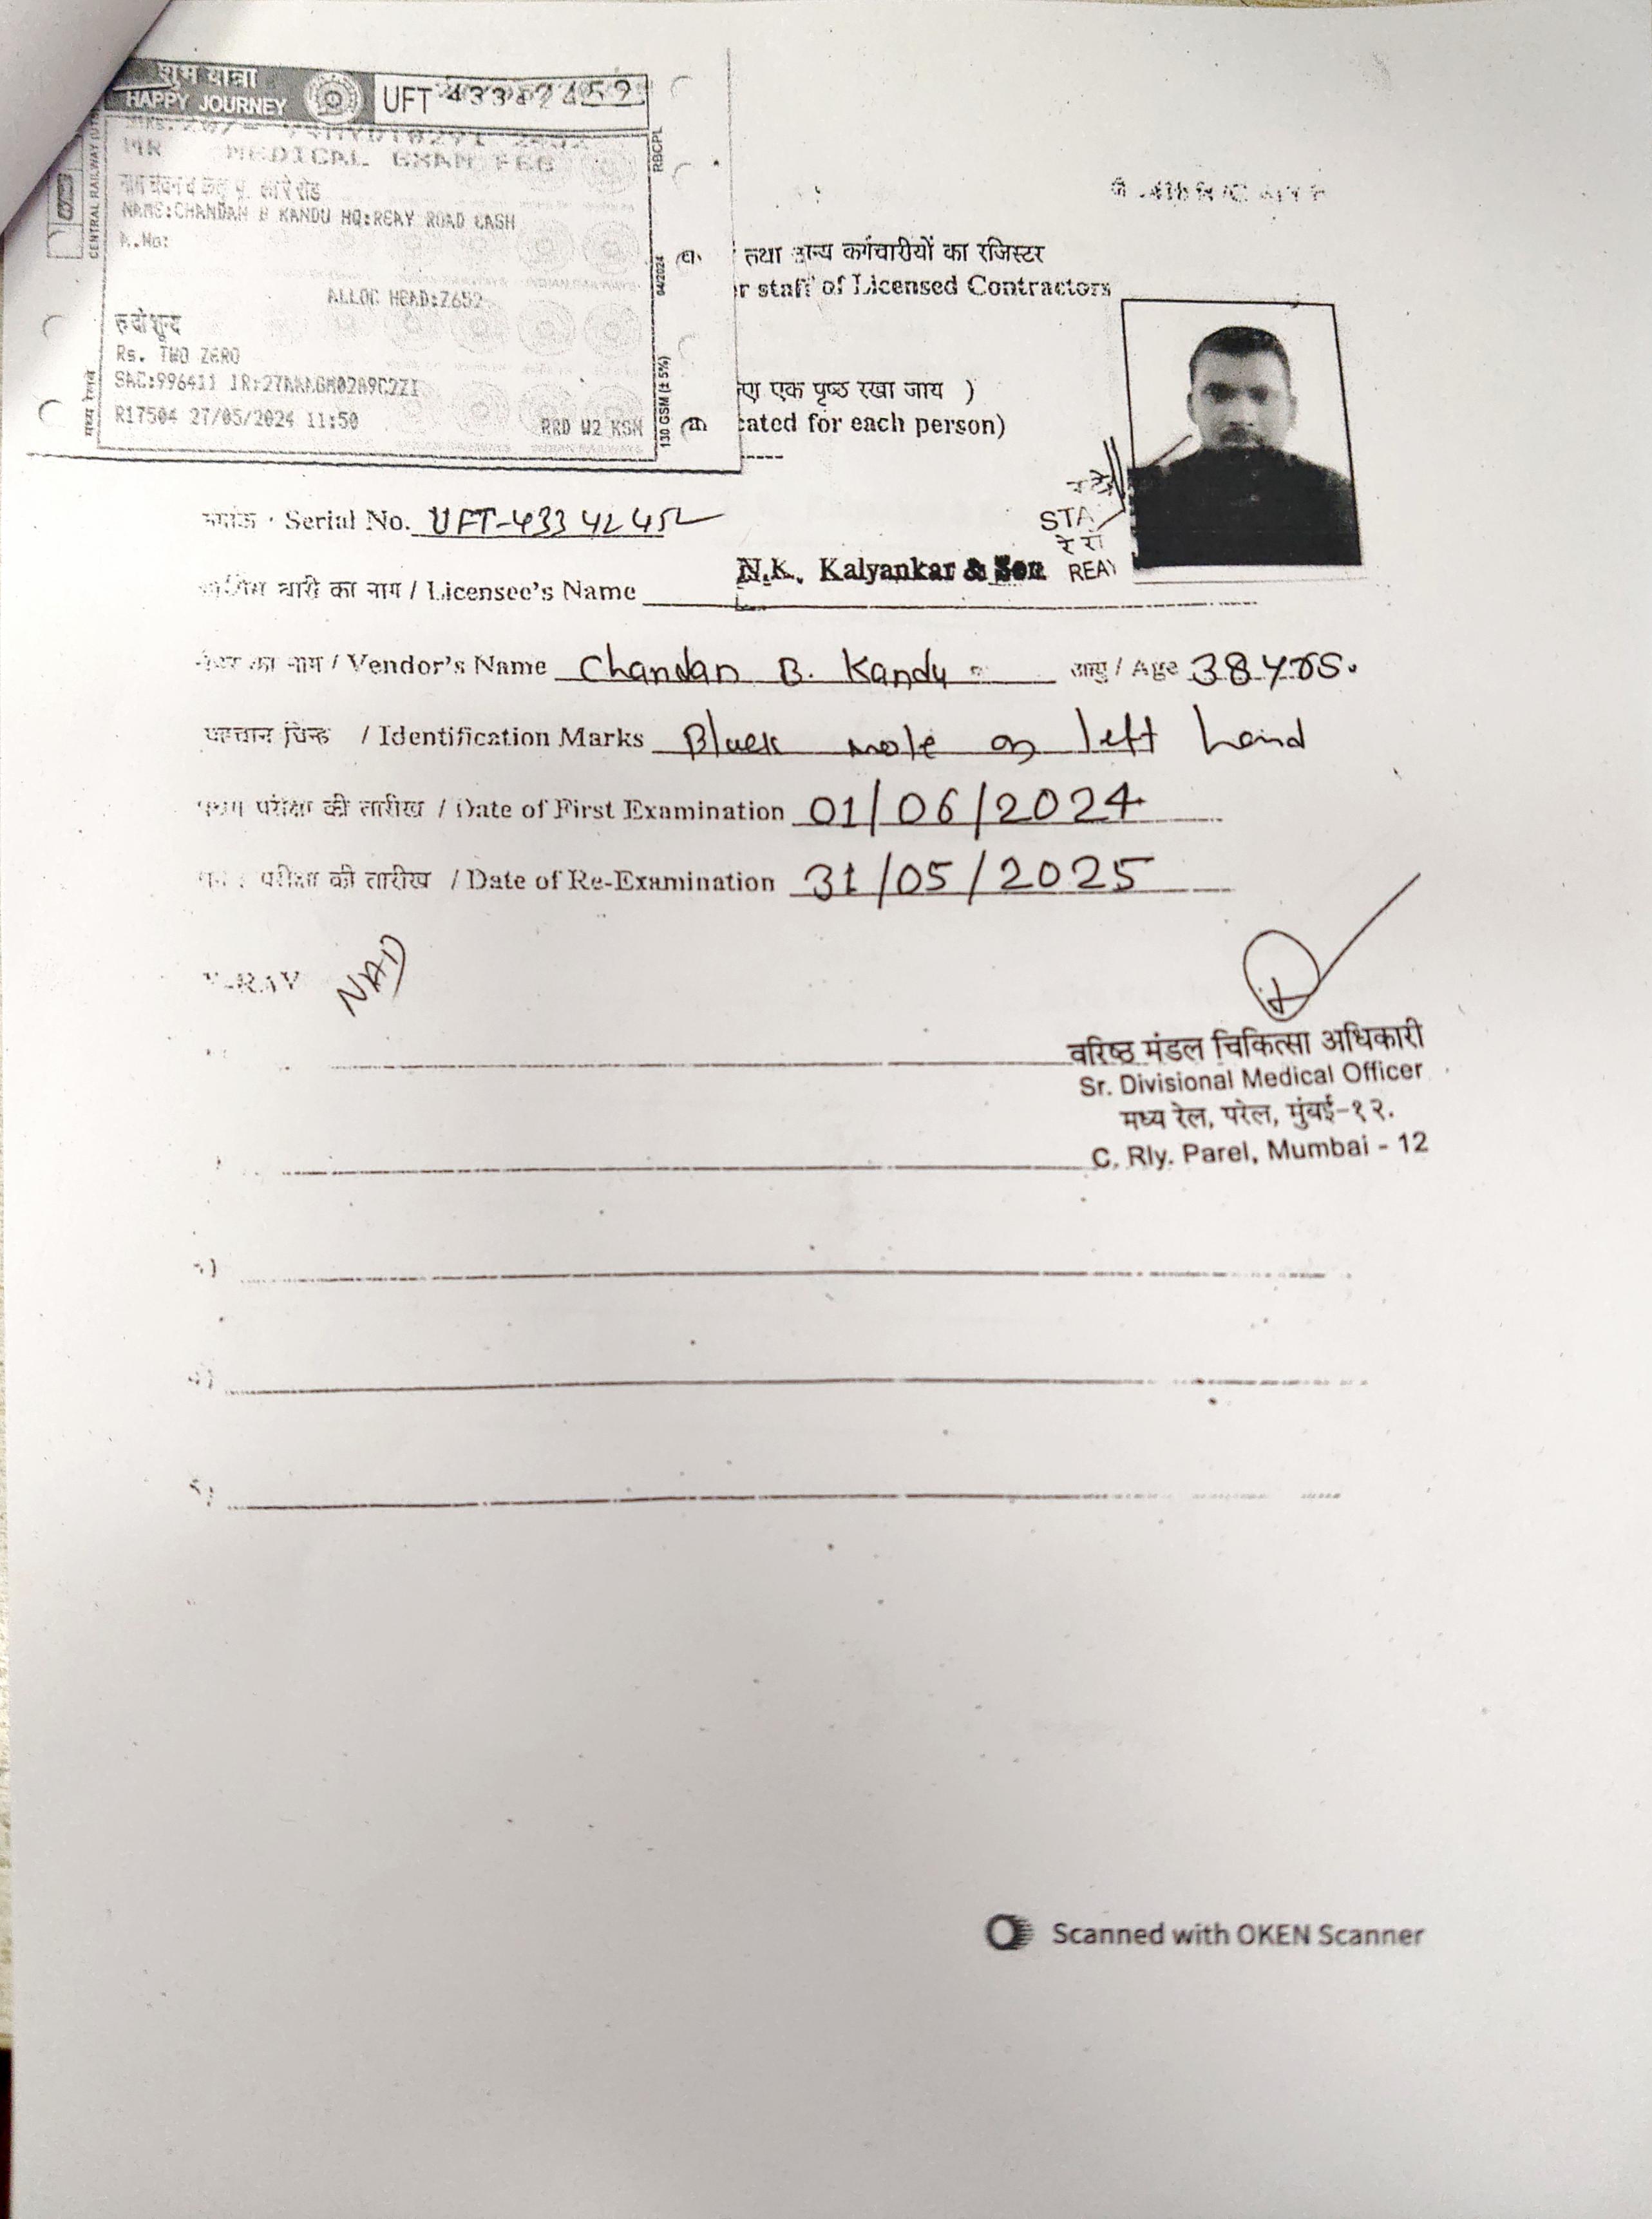 शुभ यात्रा
HAPPY JOURNEY
UFT
MR MEDICAL EXAM FEE
NAME:CHANDAN B KANDU HQ:REAY ROAD CASH
ALLOC HEAD:Z652
Rs. TWO ZERO
R17504 27/05/2024 11:50
RRD W2 KSN
CENTRAL RAILWAY
RBCPL
04/2024
130 GSM (± 5%)
तथा अन्य कर्मचारीयों का रजिस्टर
r staff of Licensed Contractors
एक पृष्ठ रखा जाय )
cated for each person)
STA
REAY
Serial No. UFT-43342452
धारी का नाम / Licensee's Name N.K. Kalyankar & Son
का नाम / Vendor's Name Chandan B. Kandu आयु / Age 38 yrs.
पहचान चिन्ह / Identification Marks Black mole on left hand
परीक्षा की तारीख / Date of First Examination 01/06/2024
परीक्षा की तारीख / Date of Re-Examination 31/05/2025
X-RAY NAD
वरिष्ठ मंडल चिकित्सा अधिकारी
Sr. Divisional Medical Officer
मध्य रेल, परेल, मुंबई-१२.
C. Rly. Parel, Mumbai - 12
Scanned with OKEN Scanner